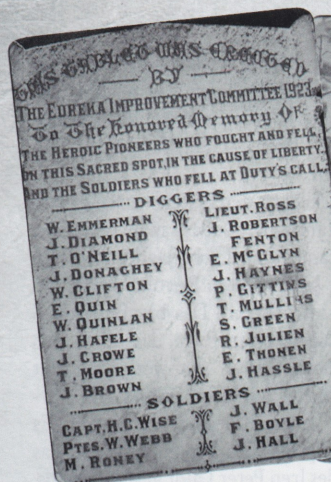 THIS TABLET WAS ERECTED
BY
THE EUREKA IMPROVEMENT COMMITTEE 1923
To The Honored Memory Of
THE HEROIC PIONEERS WHO FOUGHT AND FELL,
ON THIS SACRED SPOT, IN THE CAUSE OF LIBERTY,
AND THE SOLDIERS WHO FELL AT DUTY'S CALL.
DIGGERS
W. EMMERMAN
J. DIAMOND
T. O'NEILL
J. DONAGHEY
W. CLIFTON
E. QUIN
W. QUINLAN
J. HAFELE
J. CROWE
T. MOORE
J. BROWN
LIEUT. ROSS
J. ROBERTSON
FENTON
E. McGLYN
J. HAYNES
P. GITTINS
T. MULLINS
S. GREEN
R. JULIEN
E. THONEN
J. HASSLE
SOLDIERS
CAPT. H.C. WISE
PTES. W. WEBB
M. RONEY
J. WALL
F. BOYLE
J. HALL